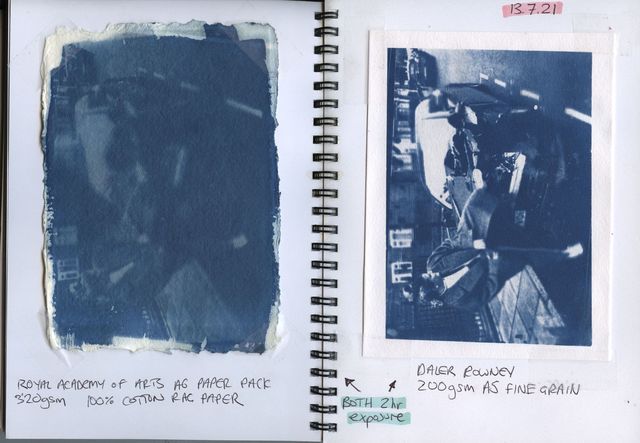 13.7.21
ROYAL ACADEMY OF ARTS A6 PAPER PACK
320gsm 100% COTTON RAG PAPER
BOTH 2hr
exposure
DALER ROWNEY
200gsm A5 FINE GRAIN